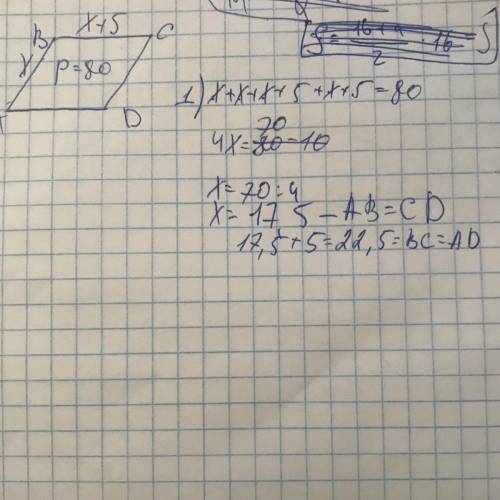 x+5
B C
x P=80
D
1) x+x+x+5+x+5=80
70
4x=80-10
x=70:4
x=17,5 - AB=CD
17,5+5=22,5=BC=AD